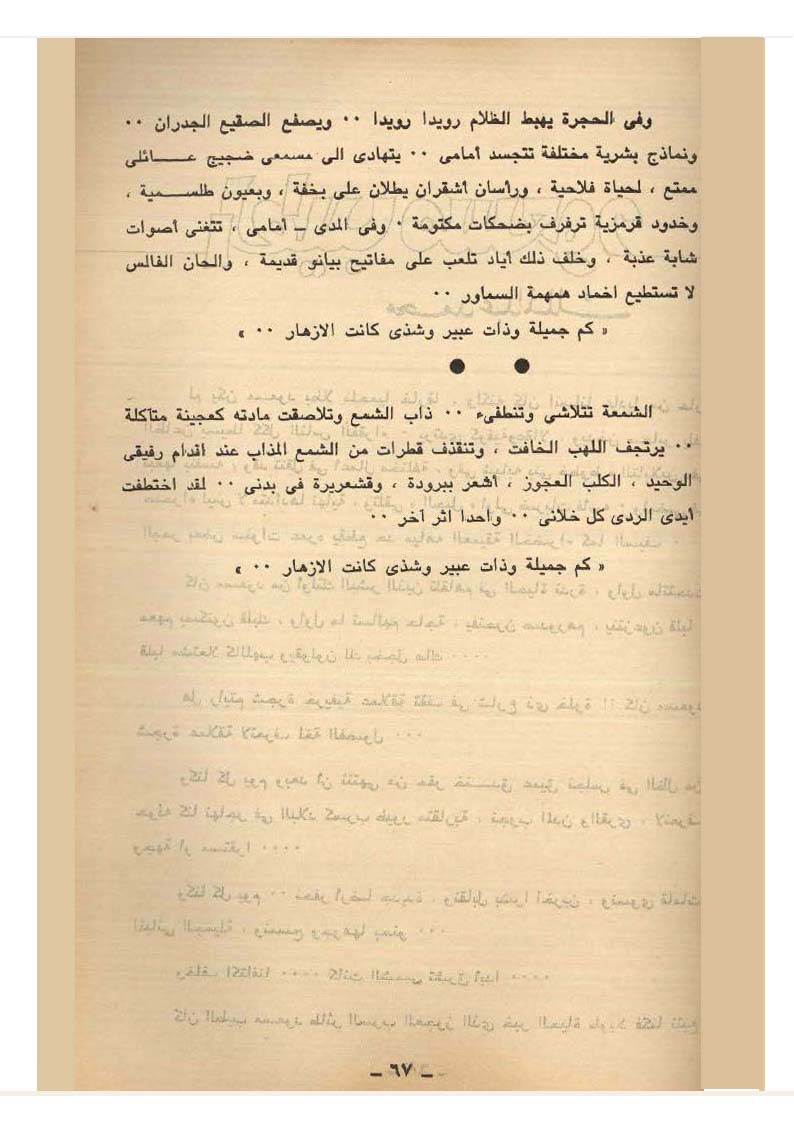 وفى الحجرة يهبط الظلام رويدا رويدا ٠٠ ويصفع الصقيع الجدران ٠٠
ونماذج بشرية مختلفة تتجسد أمامى ٠٠ يتهادى الى مسمعى ضجيج عـــائلى
ممتع ، لحياة فلاحية ، ورأسان أشقران يطلان على بخفة ، وبعيون طلســمية ،
وخدود قرمزية ترفرف بضحكات مكتومة ٠ وفى المدى ــ أمامى ، تتغنى أصوات
شابة عذبة ، وخلف ذلك أياد تلعب على مفاتيح بيانو قديمة ، والحان الفالس
لا تستطيع اخماد همهمة السماور ٠٠
« كم جميلة وذات عبير وشذى كانت الازهار ٠٠ »
● ●
الشمعة تتلاشى وتنطفىء ٠٠ ذاب الشمع وتلاصقت مادته كعجينة متآكلة
٠٠ يرتجف اللهب الخافت ، وتنقذف قطرات من الشمع المذاب عند اقدام رفيقى
الوحيد ، الكلب العجوز ، أشعر ببرودة ، وقشعريرة فى بدنى ٠٠ لقد اختطفت
أيدى الردى كل خلانى ٠٠ واحدا اثر آخر ٠٠
« كم جميلة وذات عبير وشذى كانت الازهار ٠٠ »
ــ ٦٧ ــ